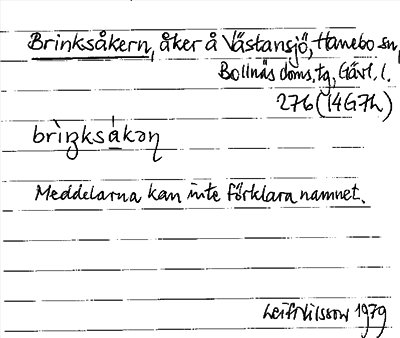 Brinksåkern, åker å Västansjö, Hanebo sn,
Bollnäs doms.tg, Gävl. l.
276 (14G7h)
brìŋksákəɳ
Meddelarna kan inte förklara namnet.
Leif Nilsson 1979